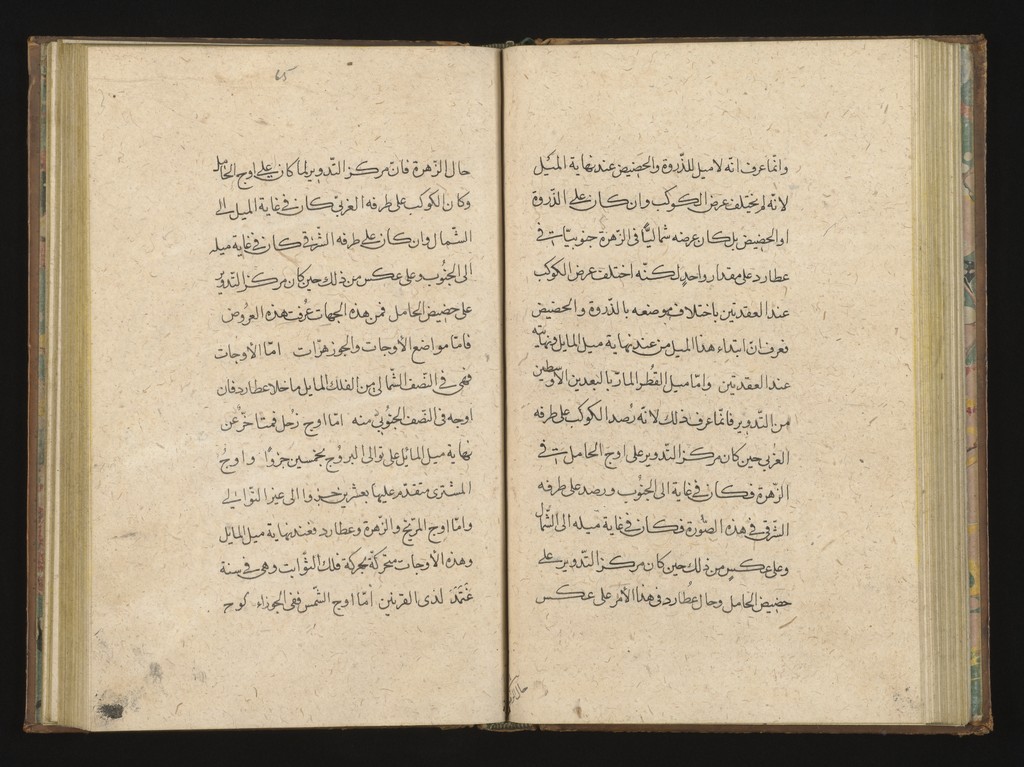 وانما عرف انه لا ميل للذروة والحضيض عند نهاية الميل
لانه لم يختلف عرض الكوكب وان كان على الذروة
او الحضيض بل كان عرضه شماليًّا فى الزهرة جنوبيًّا فى
عطارد على مقدار واحد لكنّه اختلف عرض الكوكب
عند العقدتين باختلاف موضعه بالذروة والحضيض
فعرف ان ابتداء هذا الميل من عند نهاية ميل المايل ونهايته
عند العقدتين وامّا ميل القُطر المارّ بالبعدين الاوسطين
من التدوير فانّما عرف ذلك لانه رُصد الكوكب على طرفه
الغربى حين كان مركز التدوير على اوج الحامل فى
الزهرة فكان فى غاية الى الجنُوب ورصد على طرفه
الشرقى فى هذه الصّورة فكان فى غاية ميله الى الشمال
وعلى عكسٍ من ذلك حين كان مركز التدوير على
حضيض الحامل وحال عطارد فى هذا الأمر على عكس
حال
65
حال الزهرة فانّ مركز التدوير لما كان على اوج الحامل
وكان الكوكب على طرفه الغربى كان فى غاية الميل الى
الشمال وان كان على طرفه الشرقى كان فى غاية ميله
الى الجنُوب وعلى عكس من ذلك حين كان مركز التدوير
على حضيض الحامل فمن هذه الجهات عُرفت هذه العروض
فامّا مواضع الأوجات والجوزهرّات امّا الأوجات
فهى فى النّصف الشمالى من الفلك المايل ما خلا عطارد فان
اوجه فى النصف الجنُوبى منه امّا اوج زحل فمتاخّر عن
نهاية ميل المايل على توالى البروُج بخمسين جزوًا واوجُ
المشترى متقدم عليها بعشرين جزوا الى غير التّوالى
وامّا اوج المرّيخ والزهرة وعطارد فعند نهاية ميل المايل
وهذه الأوجات متحركة بحركة فلك الثوابت وهى فى سنة
غتمد لذى القرنين امّا اوج الشمس ففى الجوزاء كوح